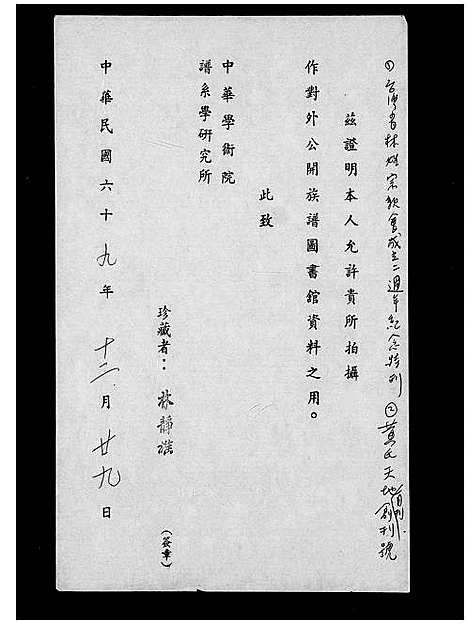 ①台湾省林姓宗親會成立二週年紀念特刊 ②黃氏天地創刊號
(月刊)
茲證明本人允許貴所拍攝
作對外公開族譜圖書館資料之用。
此致
中華學術院
譜系學研究所
珍藏者：林靜
(簽章)
中華民國六十九年十二月廿九日